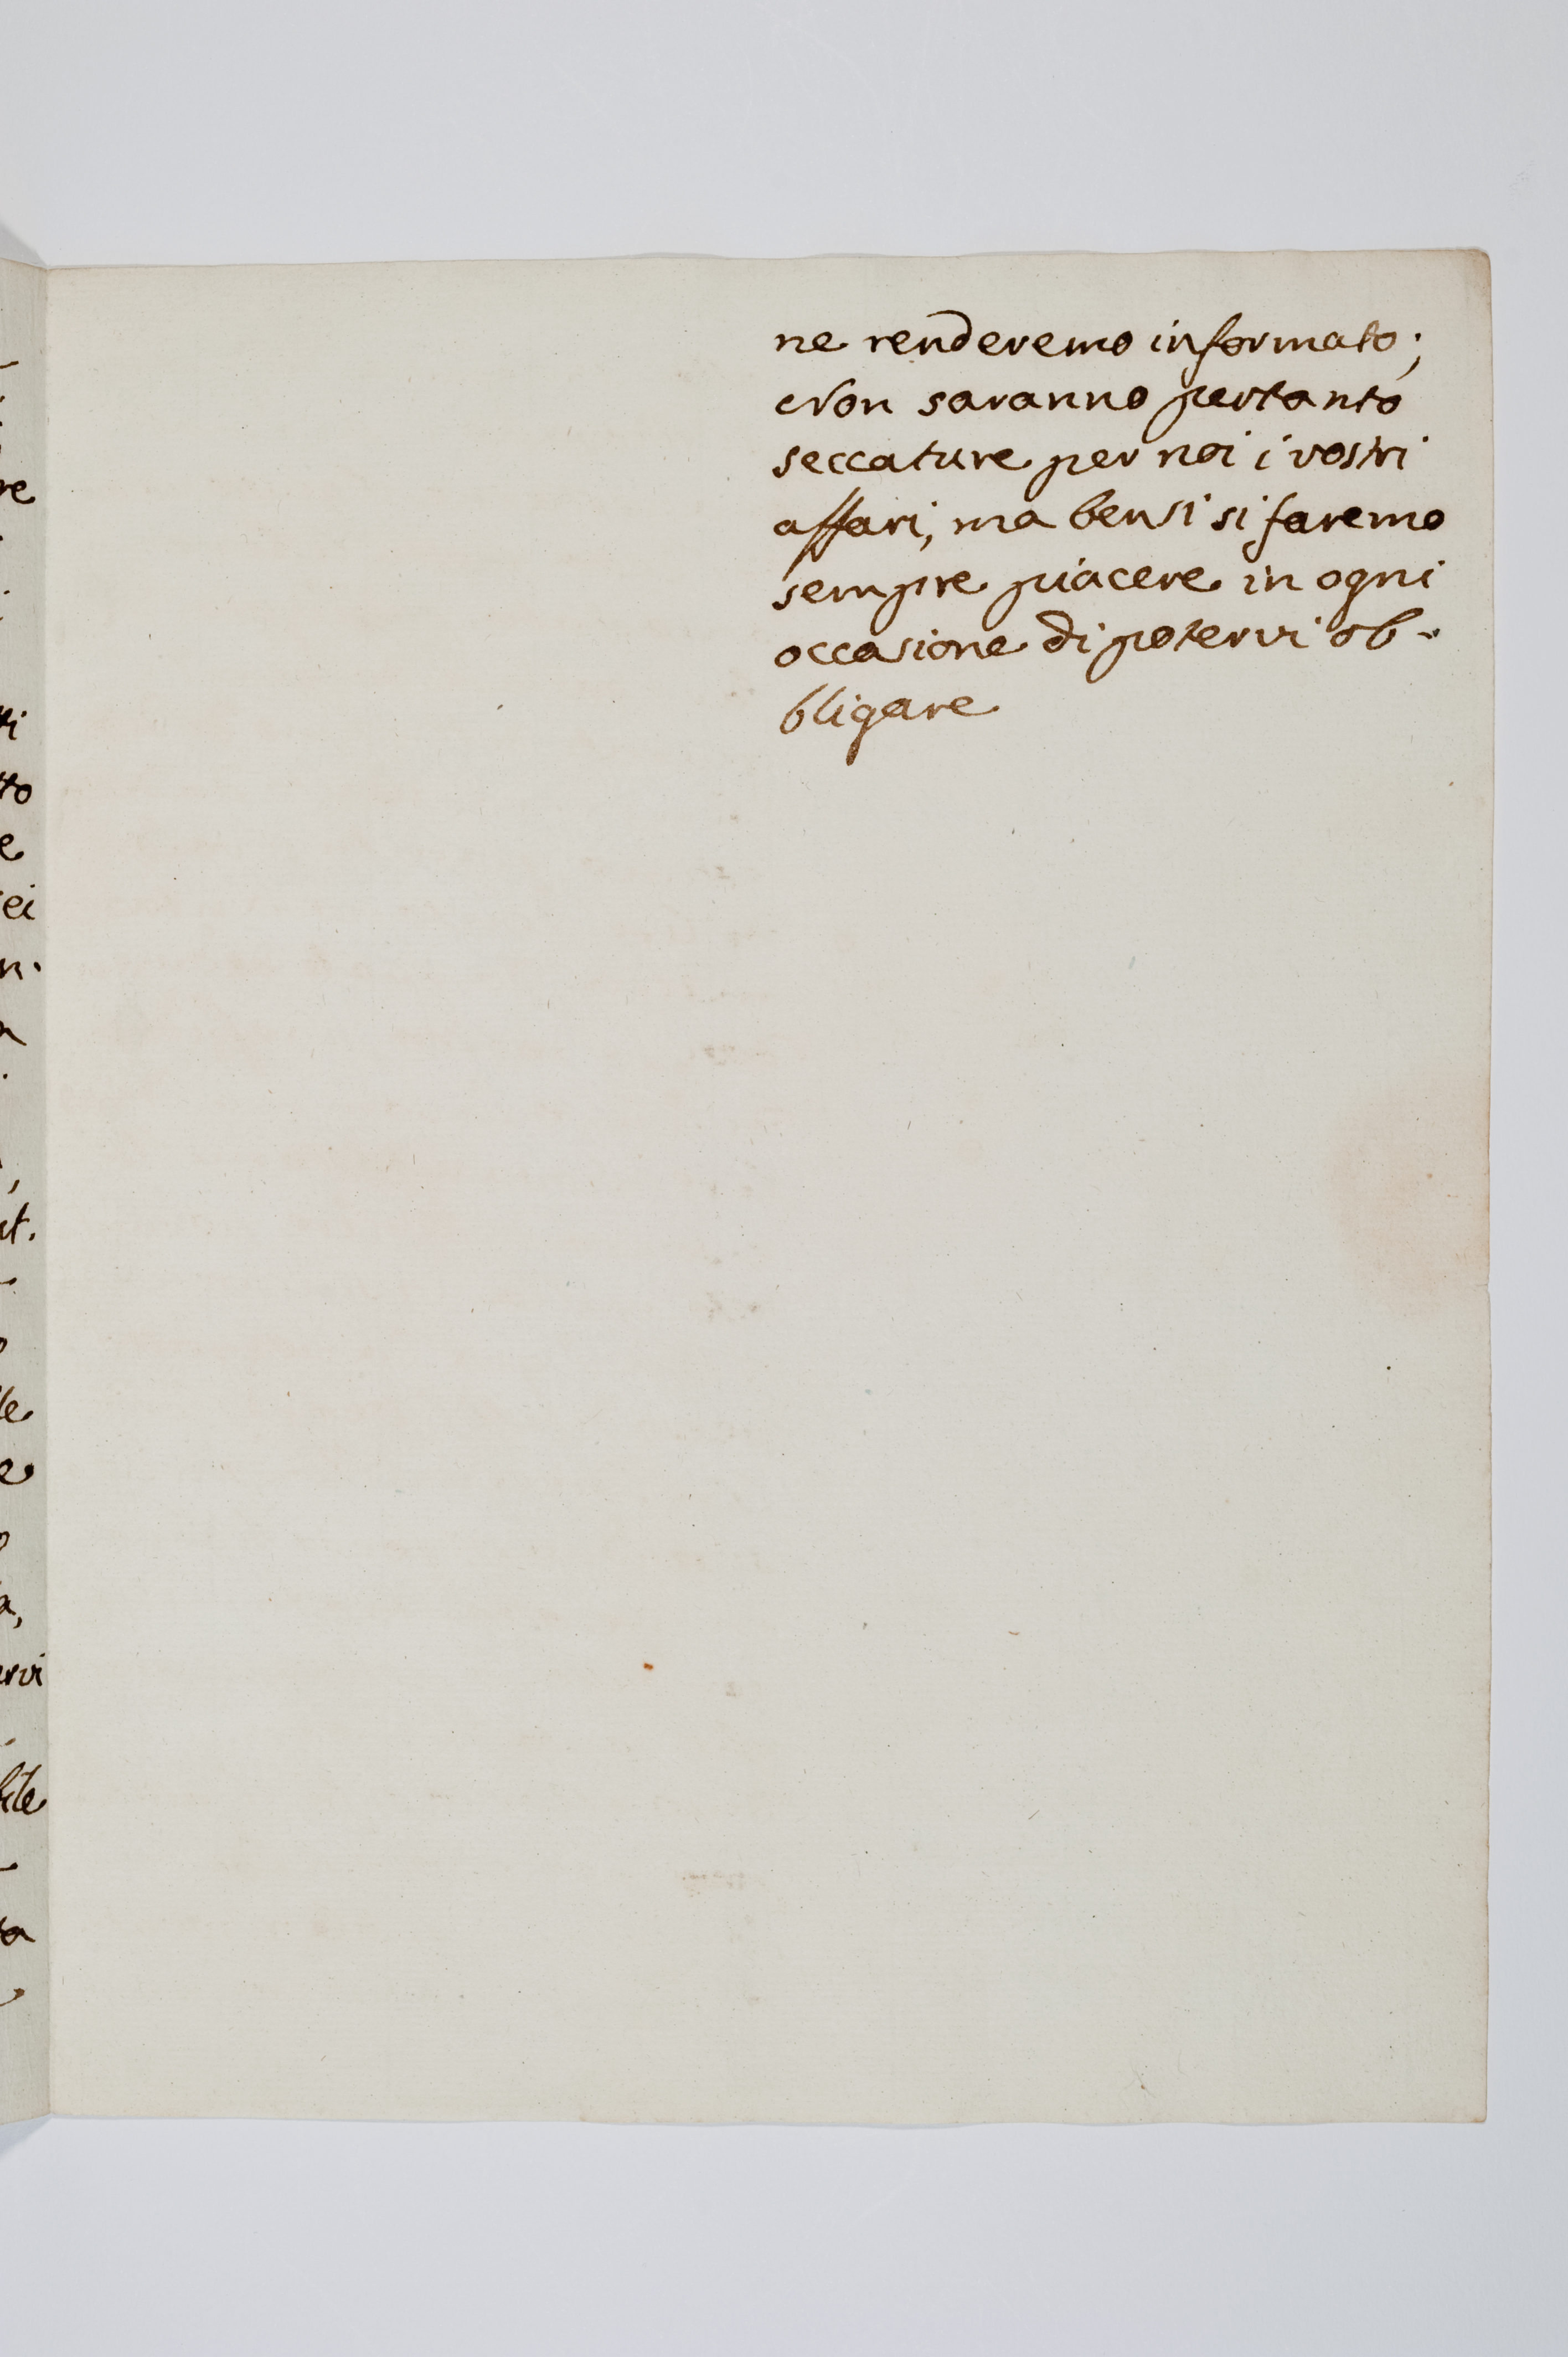 ne renderemo informato;
Non saranno pertanto
seccature per noi i vostri
affari, ma bensi si faremo
sempre piacere in ogni
occasione di potervi ob-
bligare